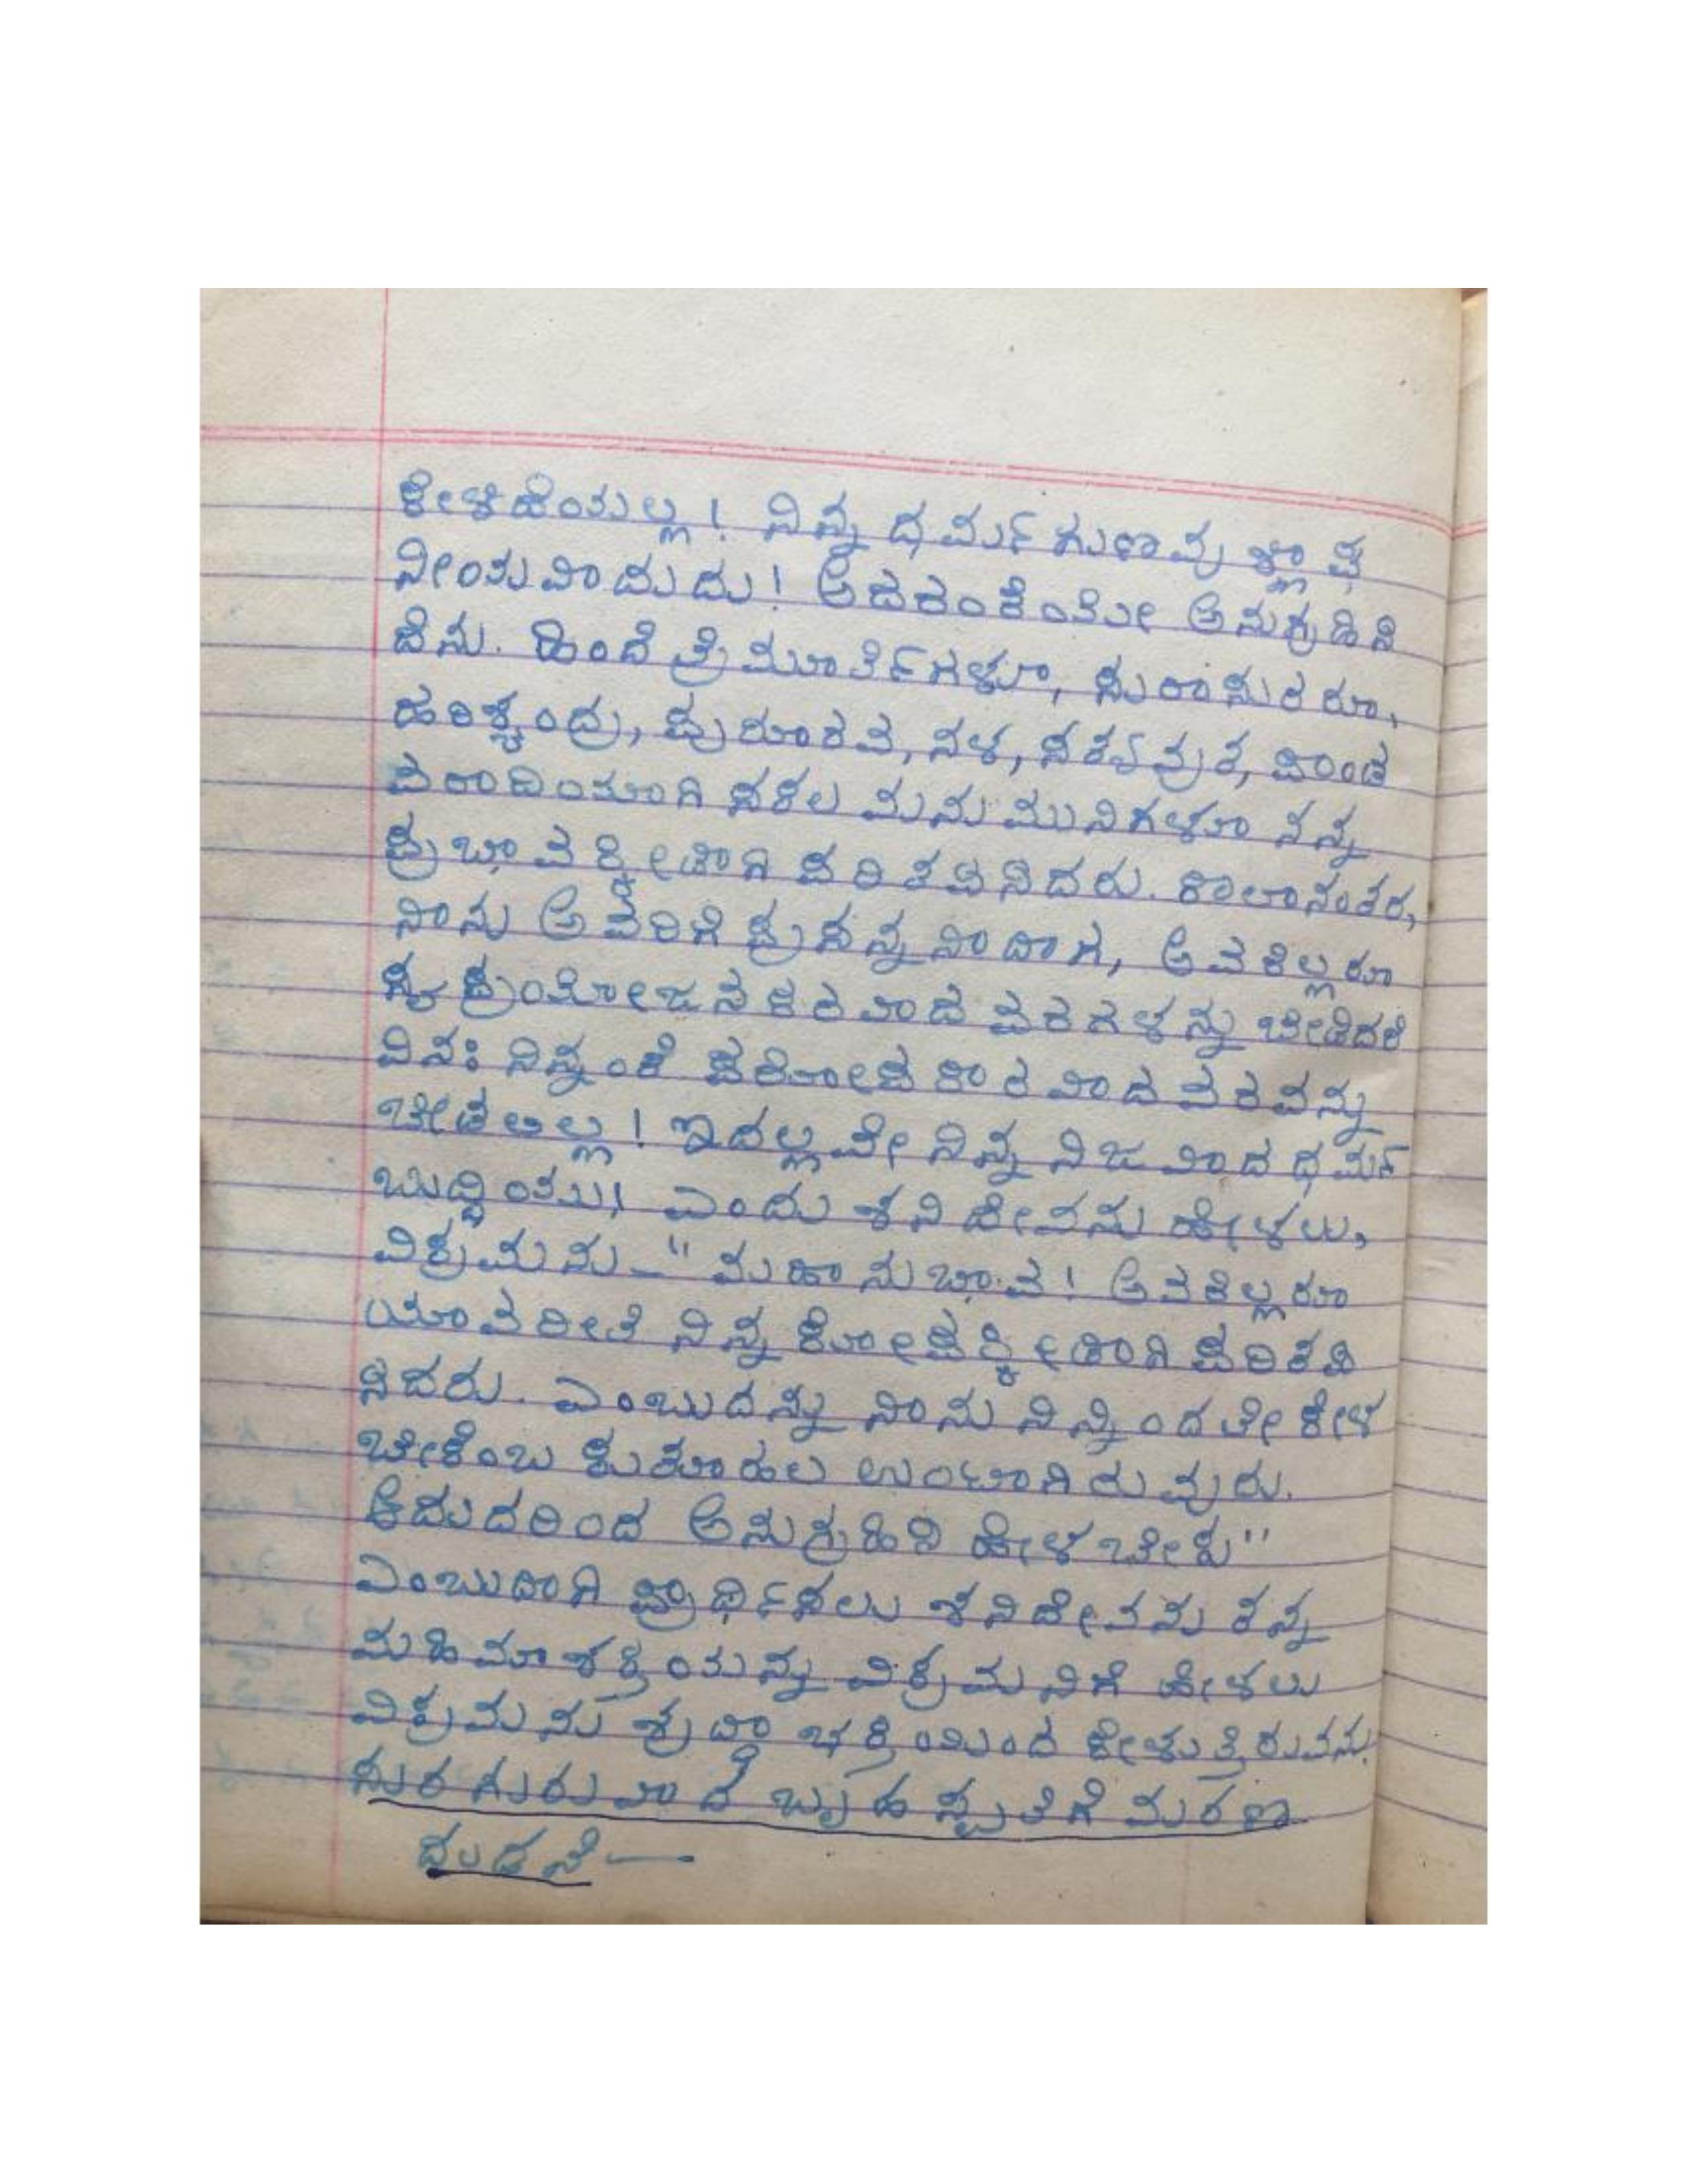 ಕೇಳಿದೆಯಲ್ಲ! ನಿನ್ನ ಧರ್ಮಗುಣವು ಶ್ಲಾಘ
ನೀಯವಾದುದು! ಅದರಂತೆಯೇ ಅನುಗ್ರಹಿಸಿ
ದೆನು. ಹಿಂದೆ ತ್ರಿಮೂರ್ತಿಗಳೂ, ಸುರಾಸುರರೂ,
ಹರಿಶ್ಚಂದ್ರ, ಪುರೂರವ, ನಳ, ಸತ್ಯವ್ರತ, ಪಾಂಡ
ವರಾದಿಯಾಗಿ ಸಕಲ ಮನುಮುನಿಗಳೂ ನನ್ನ
ಪ್ರಭಾವಕ್ಕೀಡಾಗಿ ಪರಿತಪಿಸಿದರು. ಕಾಲಾನಂತರ,
ನಾನು ಅವರಿಗೆ ಪ್ರಸನ್ನನಾದಾಗ, ಅವರೆಲ್ಲರೂ
ಸ್ವಪ್ರಯೋಜನಕರವಾದ ವರಗಳನ್ನು ಬೇಡಿದರೆ
ವಿನಃ ನಿನ್ನಂತೆ ಪರೋಪಕಾರವಾದ ವರವನ್ನು
ಬೇಡಲಿಲ್ಲ! ಇದಲ್ಲವೇ ನಿನ್ನ ನಿಜವಾದ ಧರ್ಮ
ಬುದ್ಧಿಯು! ಎಂದು ಶನಿದೇವನು ಹೇಳಲು,
ವಿಕ್ರಮನು–"ಮಹಾನುಭಾವ! ಅವರೆಲ್ಲರೂ
ಯಾವರೀತಿ ನಿನ್ನ ಕೋಪಕ್ಕೀಡಾಗಿ ಪರಿತಪಿ
ಸಿದರು. ಎಂಬುದನ್ನು ನಾನು ನಿನ್ನಿಂದಲೇ ಕೇಳ
ಬೇಕೆಂಬ ಕುತೂಹಲ ಉಂಟಾಗಿರುವುದು.
ಆದುದರಿಂದ ಅನುಗ್ರಹಿಸಿ ಹೇಳಬೇಕು"
ಎಂಬುದಾಗಿ ಪ್ರಾರ್ಥಿಸಲು ಶನಿದೇವನು ತನ್ನ
ಮಹಿಮಾಶಕ್ತಿಯನ್ನು ವಿಕ್ರಮನಿಗೆ ಹೇಳಲು
ವಿಕ್ರಮನು ಶ್ರದ್ಧಾಭಕ್ತಿಯಿಂದ ಕೇಳುತ್ತಿರುವನು.
ಸುರಗುರುವಾದ ಬೃಹಸ್ಪತಿಗೆ ಮರಣ
ದಂಡನೆ—